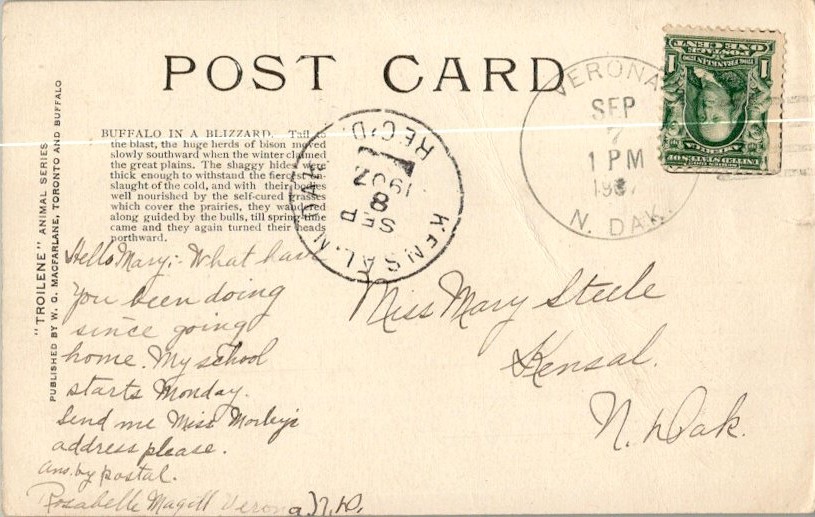 POST CARD
"TROILENE" ANIMAL SERIES.
PUBLISHED BY W. G. MACFARLANE, TORONTO AND BUFFALO
BUFFALO IN A BLIZZARD. Tail to
the blast, the huge herds of bison moved
slowly southward when the winter claimed
the great plains. The shaggy hides were
thick enough to withstand the fiercest on-
slaught of the cold, and with their bodies
well nourished by the self-cured grasses
which cover the prairies, they wandered
along guided by the bulls, till spring time
came and they again turned their heads
northward.
KENSAL, N. DAK.
SEP
8
1907
REC'D.
VERONA
SEP
7
1 PM
1907
N. DAK.
UNITED STATES OF AMERICA
1 1
POSTAGE
ONE CENT
Hello Mary:- What have
you been doing
since going
home. My school
starts Monday.
Send me Miss Morley's
address please.
Ans. by postal.
Rosabelle Magill Verona, N.D.
Miss Mary Steele
Kensal.
N. Dak.